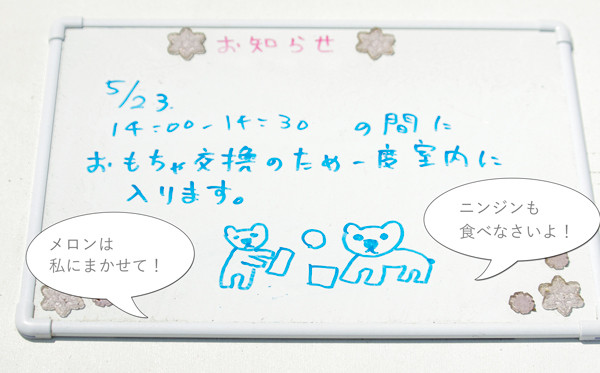 お知らせ
5/23.
14:00-14:30 の間に
おもちゃ交換のため一度室内に
入ります。
メロンは
私にまかせて!
ニンジンも
食べなさいよ!